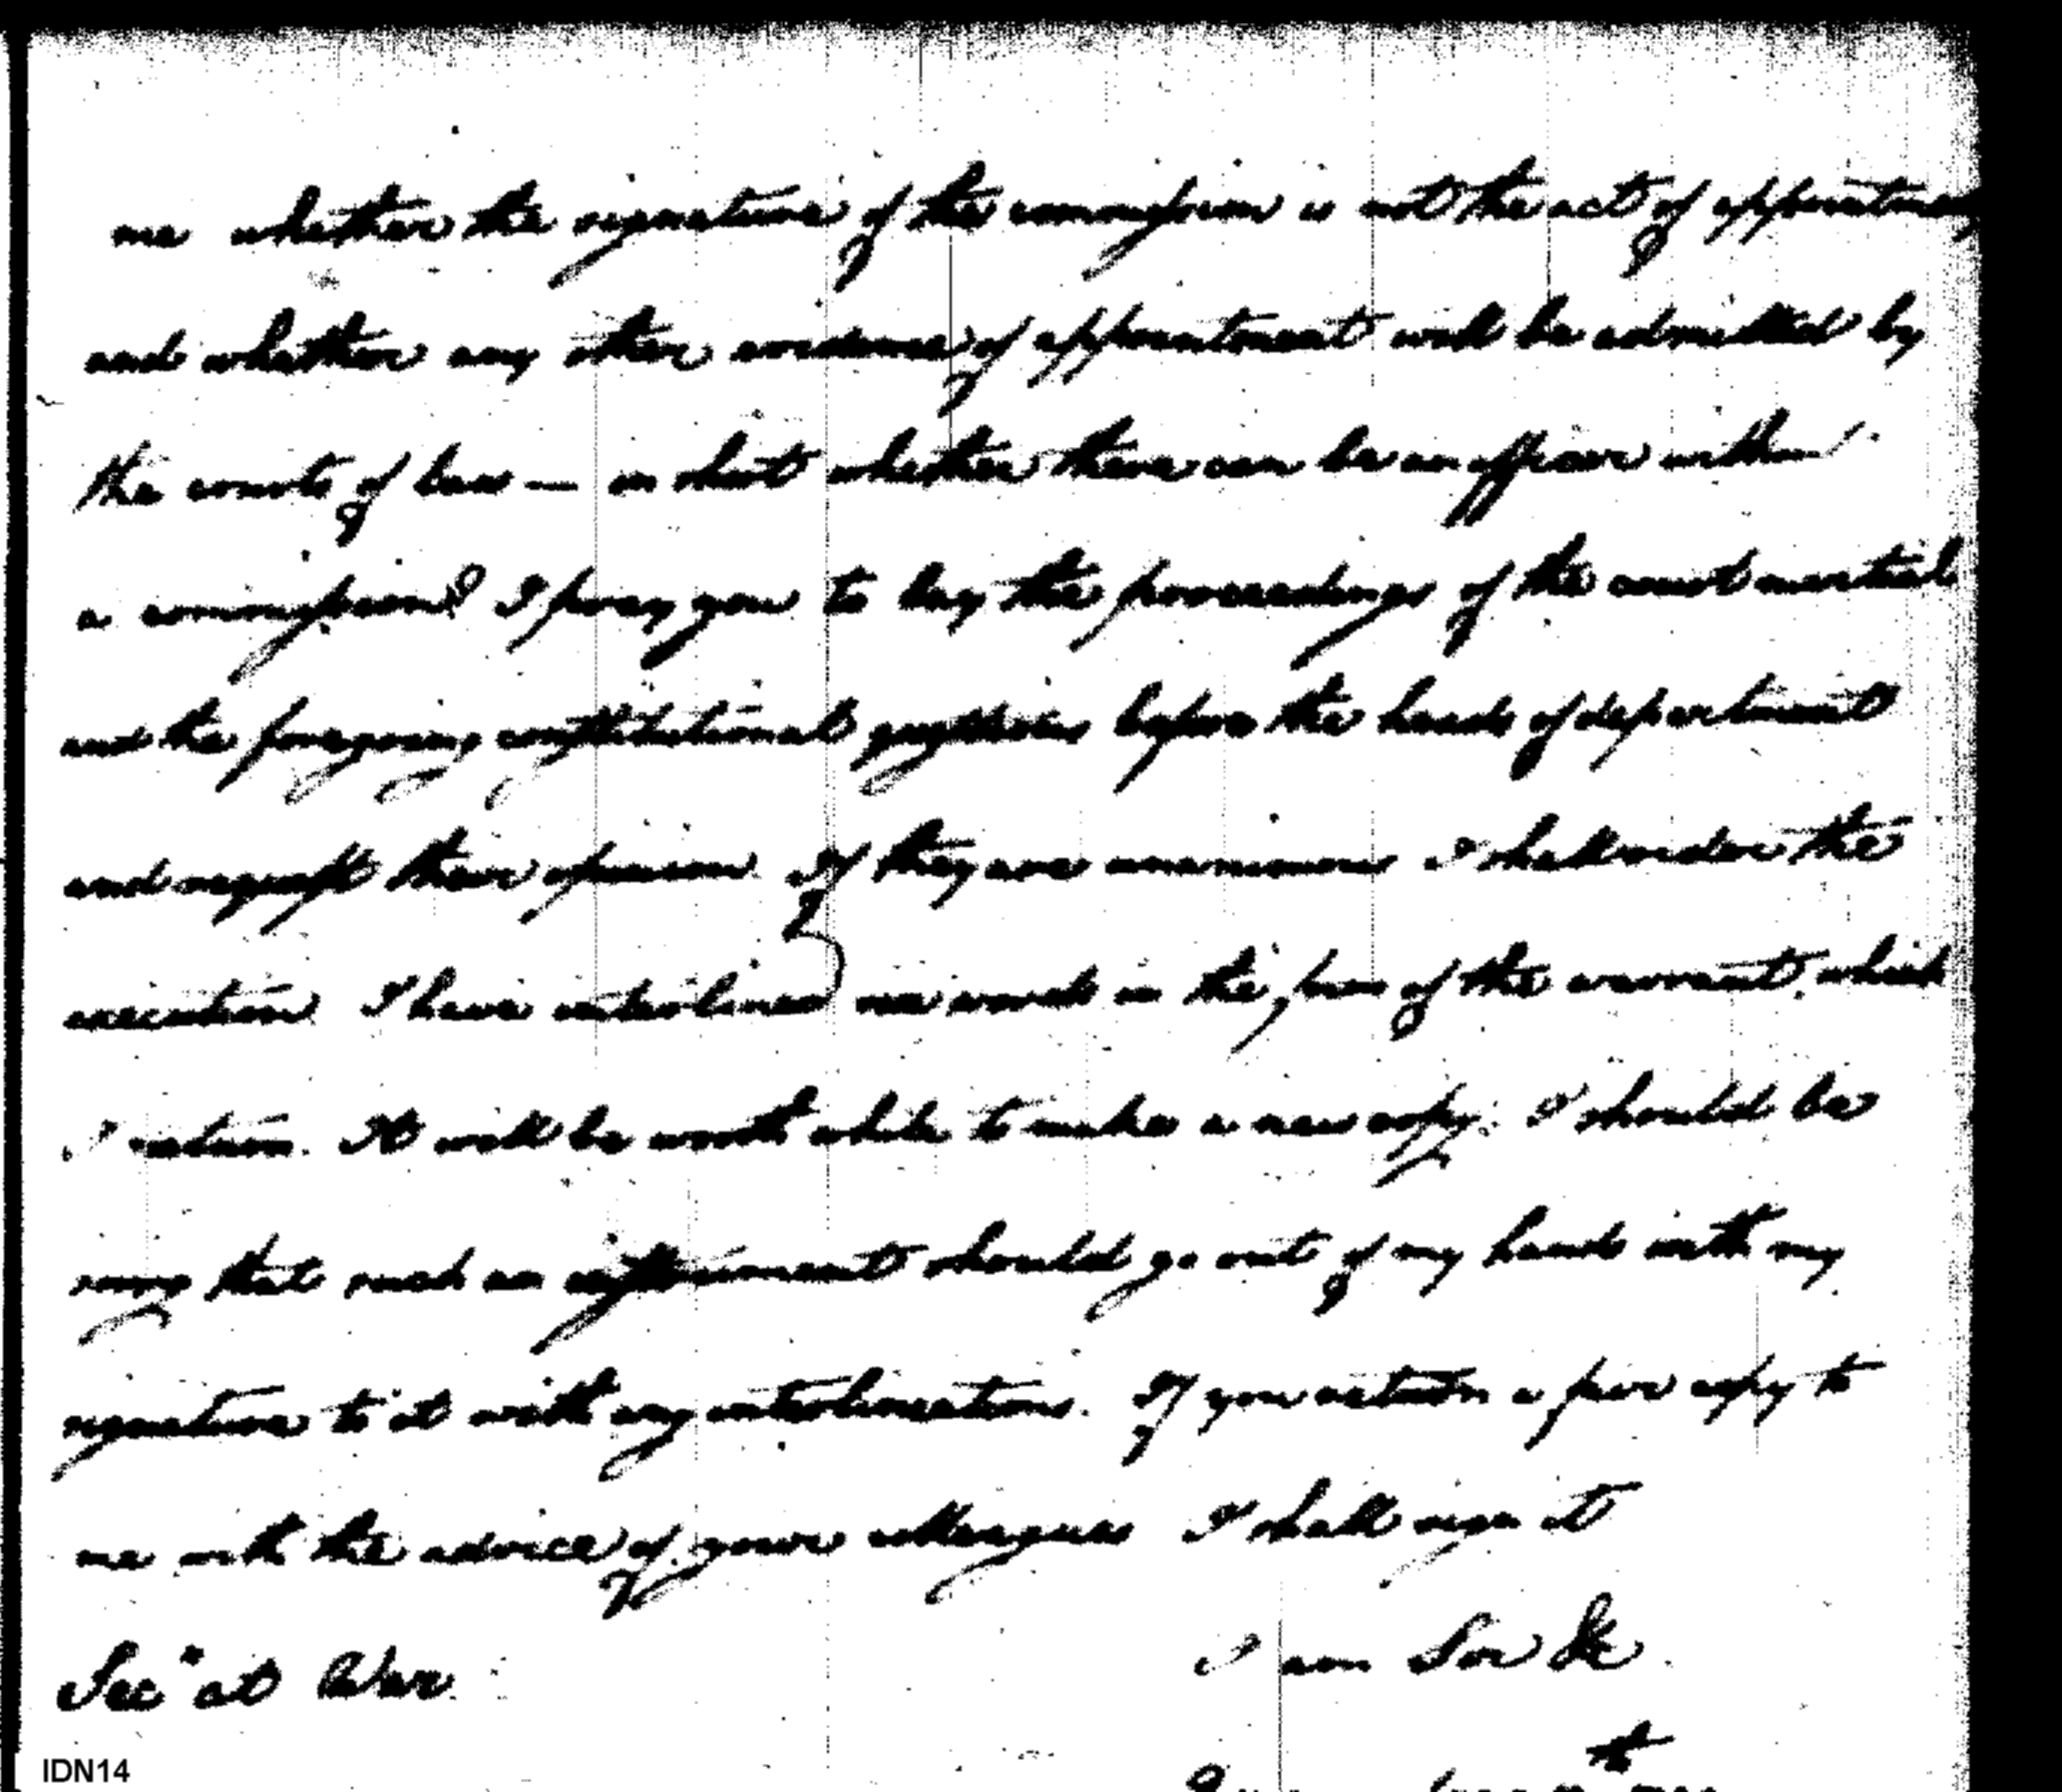 me whether the signature of the commission is not the act of appointment
and whether any other evidence of appointment will be admitted by
the courts of law — in short whether there can be an officer without
a commission? I pray you to lay the proceedings of the court martial
and the foregoing constitutional questions before the heads of department
and request their opinion. If they are unanimous I shall order the
execution. I have interlined in the form of the warrant, which
I return. It will be worth while to make a new copy. I should be
sorry that such an instrument should go out of my hands with my
signature to it with any interlineations. If you return a fair copy to
me with the advice of your colleagues I shall sign it
I am Sir &c.
Secy at War.
IDN14